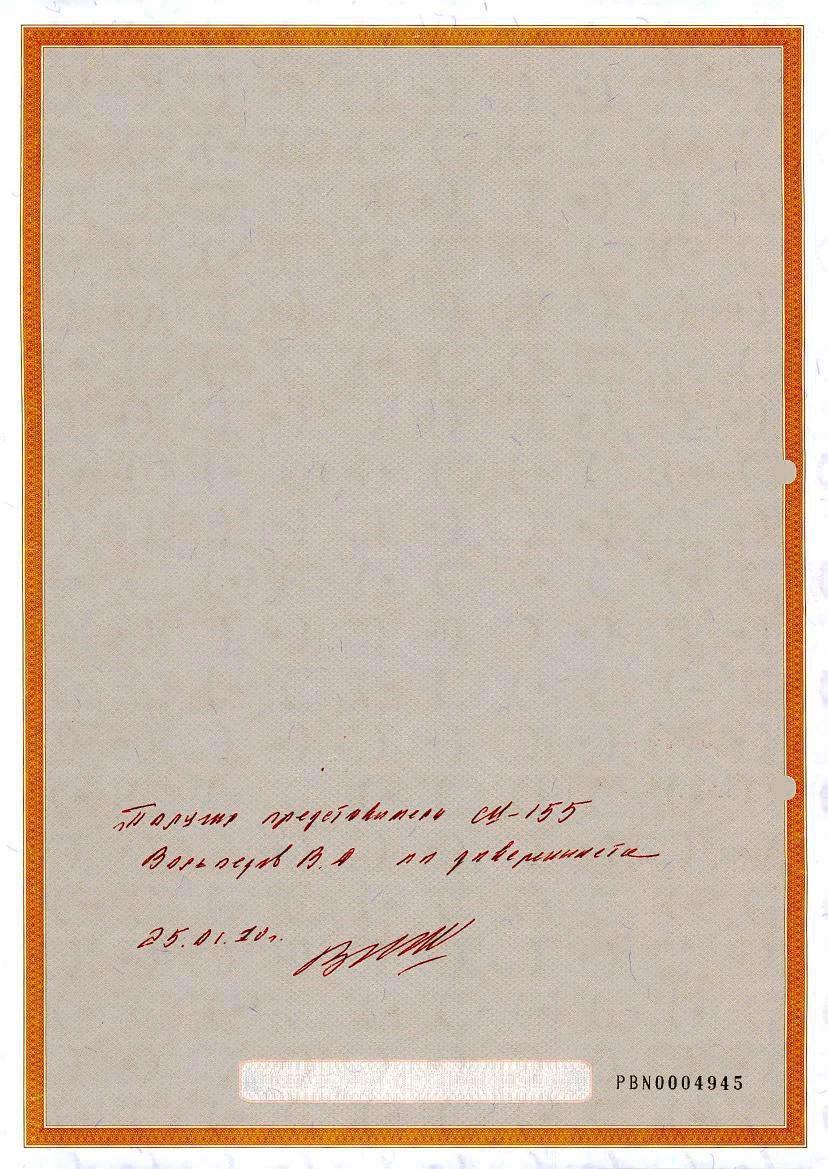 Получил представитель СМ-155
Вольперов В.А по доверенности
25.01.20г.
PBN0004945